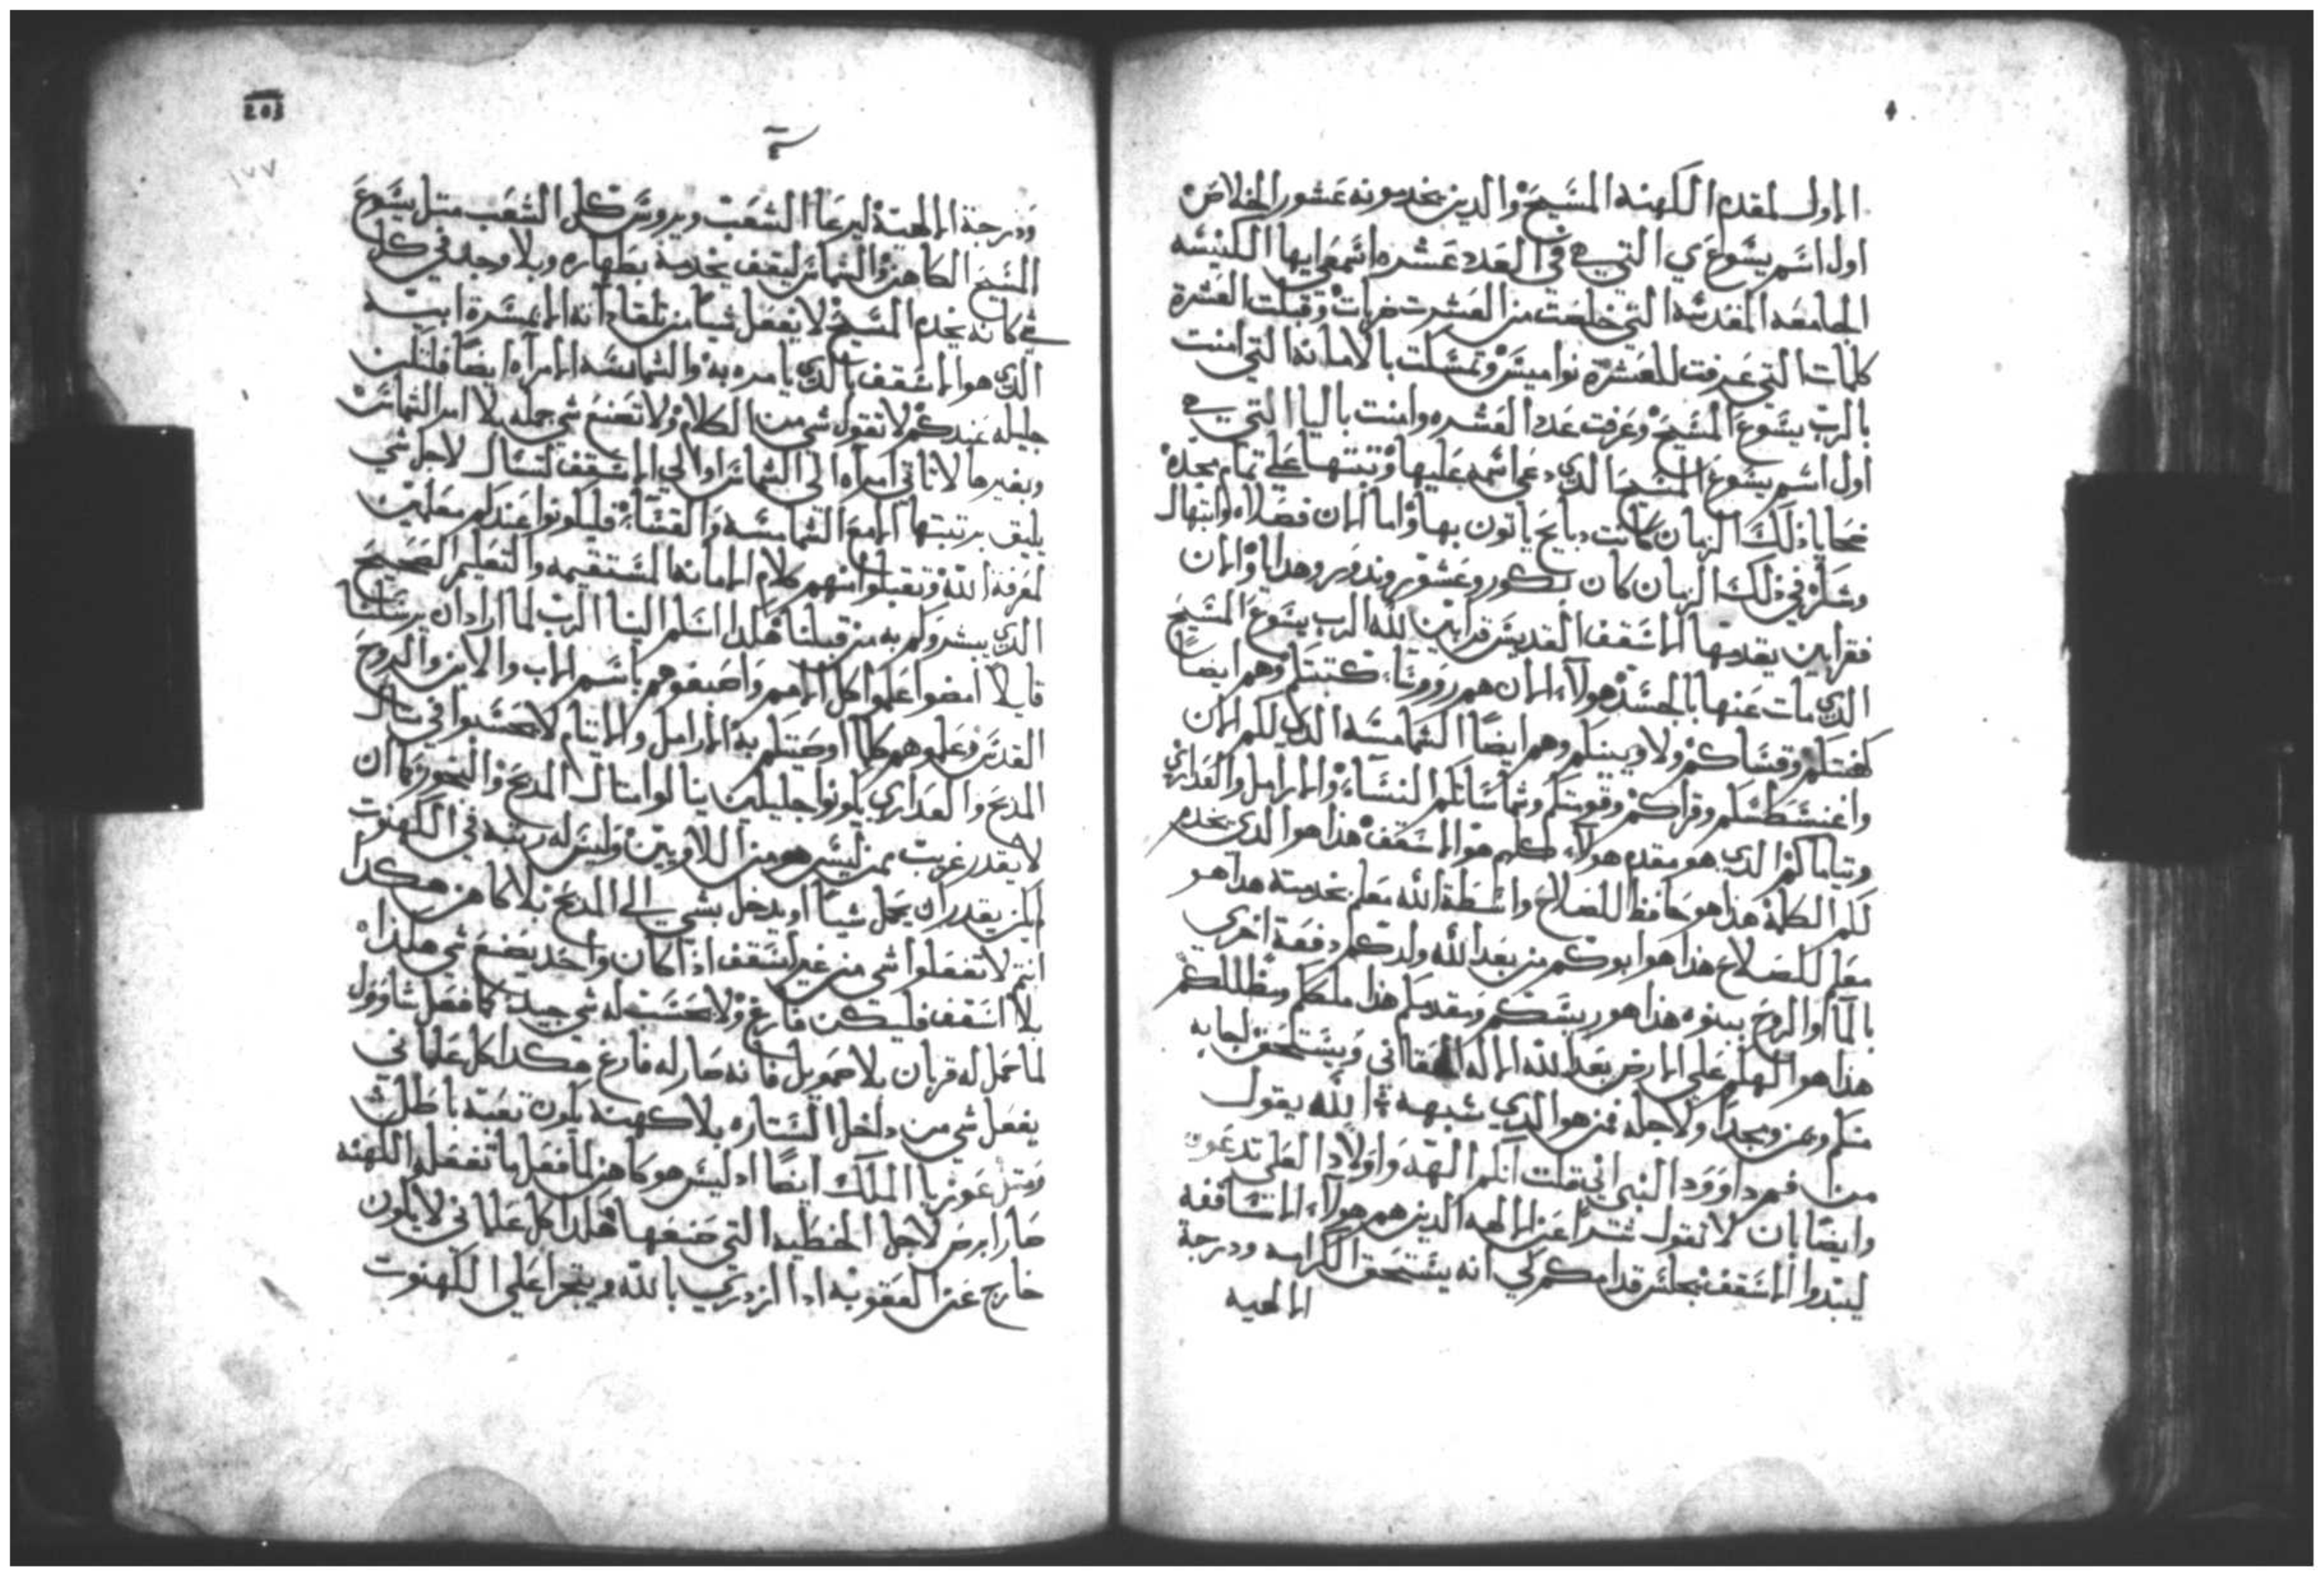 الاول لمقدم الكهنه المسيح والدين يخدمونه عشور الخلاص
اول اسم يسوع ي التي هي في العدد عشره اسمعي ايها الكنيسه
الجامعه المقدسه التي خلصت من العشرت ضربات وقبلت العشرة
كلمات التي عرفت للعشرة نواميس وتمسكت بالامانه التي امنت
بالرب يسوع المسيح وعرفت عدد العشره وامنت باليا التي هي
اول اسم يسوع المسيح الدي دعي اسمه عليها وتبتها علي تمام مجده
ضحايا ذلك الزمان كانت دبايح ياتون بها واما الان فصلاه وابتهال
وشكر في ذلك الزمان كان بكور وعشور وندور وهدايا والان
فقرابين يقدمها الاسقف القديس قرابين لله الرب يسوع المسيح
الدي مات عنها بالجسد هولاء الان هم رووسا كهنتكم وهم ايضا
كهنتكم وقساكم ولاويينكم وهم ايضا الشمامسه الدي لكم الان
واغنسطسكم وقراكم وقومتكم وشماساتكم النساء والارامل والعداري
ويتاماكم الدي هو مقدم هولاء كلهم هو الاسقف هذا هو الدي يخدم
لكم الكلمة هذا هو حافظ للصلاح واسطة الله معلم بخدمته هدا هو
معلم للصلاح هذا هو ابوكم من بعد الله ولدكم دفعة اخري
بالما والروح ببنوه هذا هو ريسكم ومقدمكم هذا ملككم ومظللكم
هذا هو الهكم علي الارض بعد الله الاله الحقاني ويستحق لجابه
منكم وعز ومجد ولاجله فمن هو الدي شبهه الله يقول
من فم داوود النبي اني قلت انكم الهه واولاد العلي تدعون
وايضا بان لا تقول شرا عن الالهه الدين هم هولاء الاساقفه
ليبتدوا الاسقف يجلس قدامكم كي انه يستحق الكرامه ودرجة
الالهيه
203
١٧٧
ودرجة الالهية ليرعا الشعب ويرووس كل الشعب متل يسوع
المسيح الكاهن والشماس ليقف يخدمه بطهاره وبلا وجد في كل
شي كانه يخدم المسيح لا يفعل شيا من تلقا دانه الا بمسرة ابيه
الدي هو الاسقف بالدي يامره به والشمامسه الامراه ايضا فلتكن
جليله عندكم لا تقول شي من الكلام ولا تصنع شي جمله بلا امر الشماس
وبغيرها لا تاتي امراه الي الشماس او الي الاسقف لتسال لاجل شي
يليق برتبتها الا مع الشمامسه والقساء فليكونوا عندكم معلمين
لمعرفة الله وتقبلوا منهم كلام الامانه المستقيمه والتعليم الصحيح
الدي يبشروكم به من قبلنا هكدا اسلم الينا الرب لما اراد ان يرسلنا
قايلا امضوا علموا كل الامم واصبغوهم باسم الاب والابن والروح
القدس وعلموهم كلما اوصيتكم به الارامل والايتام لا تحسدوا في متال
المدبح والعداري يكونوا جليلين ينالوا متال المدبح والبخور كما ان
لا يقدر غريب ممن ليس هو من اللاويين وليس له رتبه في الكهنوت
لمن يقدر ان يحمل شيا او يدخل بشي الي المدبح بلا كاهن هكدا
انتم لا تفعلوا شي من غير اسقف اذا كان واحد يصنع شي هكذا
بلا اسقف فليكن فارغ ولا تحسب له شي جيد كما فعل شاوول
لما عمل له قربان بلا صمويل فانه صار له فارغ هكدا كل علماني
يفعل شي من داخل الستاره بلا كهنة يكون تعبه باطل
ومتل عوزيا الملك ايضا اد ليس هو كاهن لما فعل ما تفعله الكهنه
صار ابرص لاجل الخطيه التي صنعها هكدا كل علماني لا يكون
خارج عن العقوبه ادا ازدري بالله ويتجرا علي الكهنوت